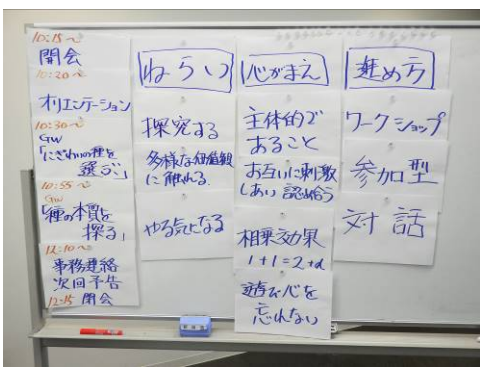 10:15〜
開会
10:20〜
オリエンテーション
10:30〜
GW
「にぎわいの種を
選ぶ」
10:55〜
GW
「種の本質を
探る」
12:10〜
事務連絡
次回予告
12:15 閉会
ねらい
探究する
多様な価値観
に触れる.
やる気になる
心がまえ
主体的で
あること
お互いに刺激
しあい 認め合う
相乗効果
1+1=2+α
遊び心を
忘れない
進め方
ワークショップ
参加型
対話